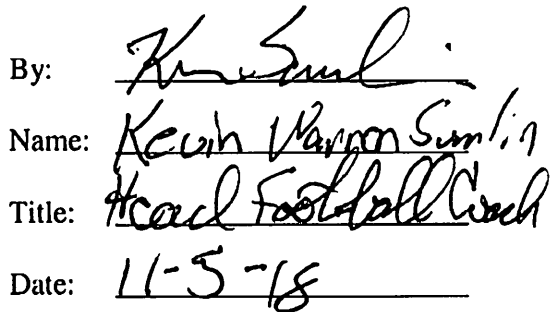 By: Kevin Sumlin
Name: Kevin Warren Sumlin
Title: Head Football Coach
Date: 11-5-18